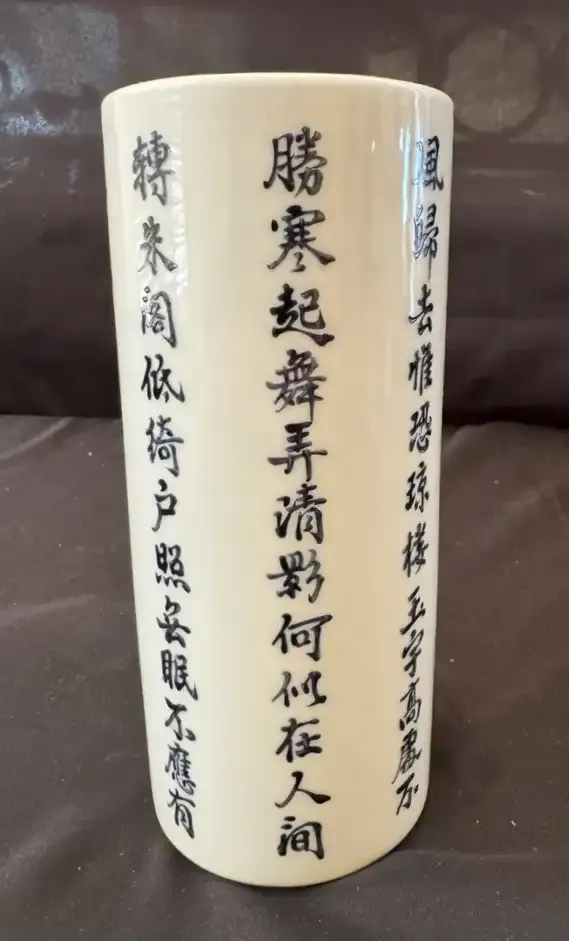 風歸去惟恐琼楼玉宇高處不
勝寒起舞弄清影何似在人间
轉朱阁低綺户照無眠不應有